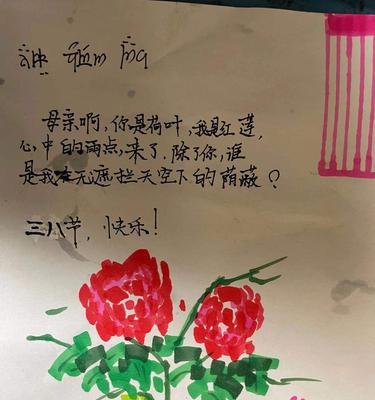 母亲啊,你是荷叶,我是红莲,
心中的雨点,来了.除了你,谁
是我在无遮拦天空下的荫蔽?
三八节,快乐!